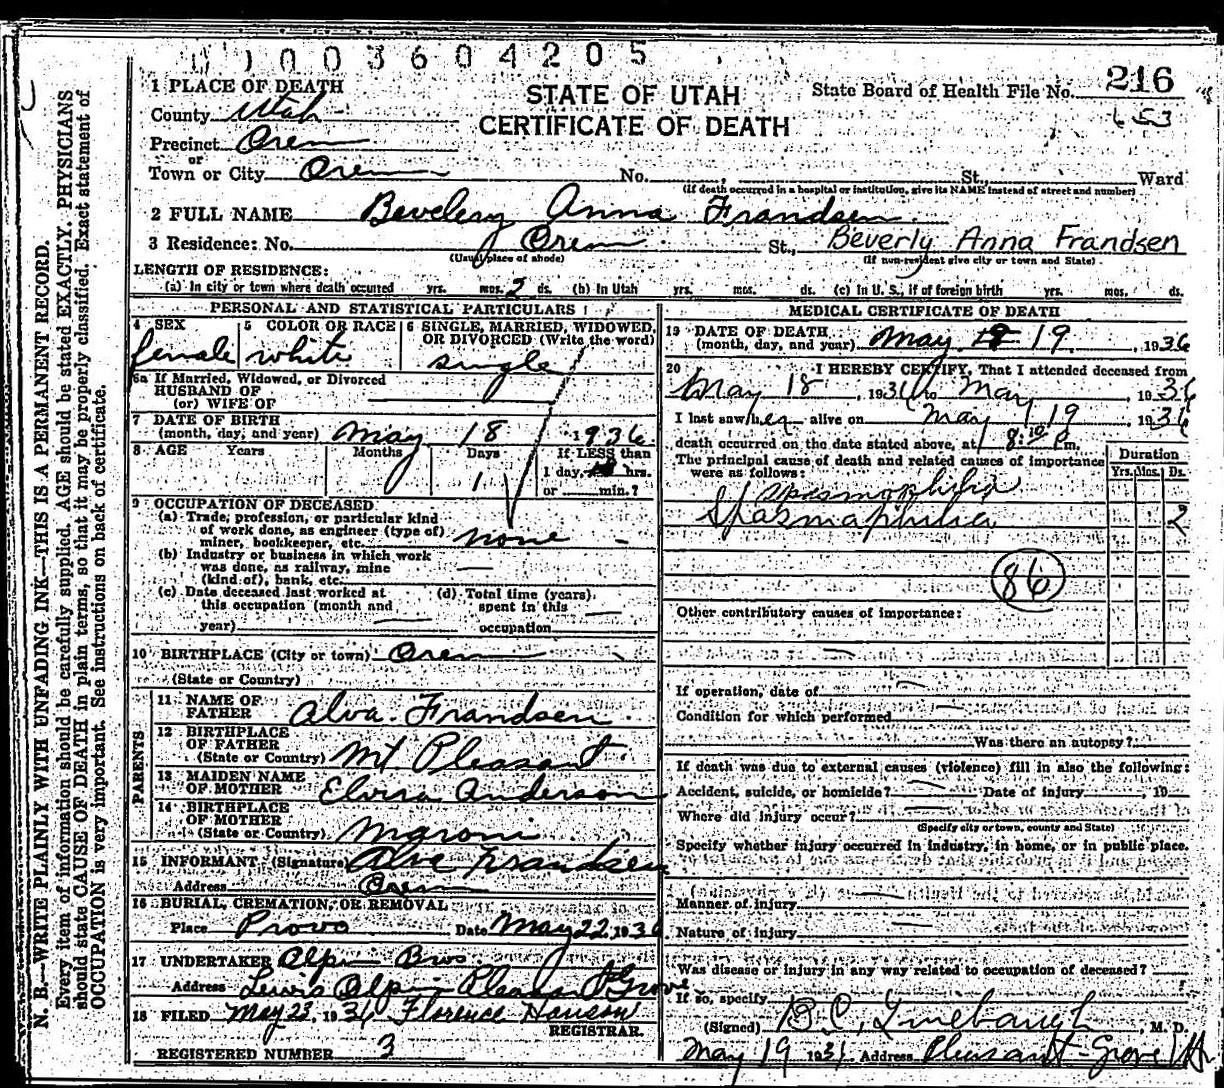 003604205
1 PLACE OF DEATH
STATE OF UTAH
State Board of Health File No. 216
County Utah
CERTIFICATE OF DEATH
653
Precinct Orem
or
Town or City Orem No. , St., Ward
(If death occurred in a hospital or institution, give its NAME instead of street and number)
2 FULL NAME Bevelery Anna Frandsen
3 Residence: No. Orem St., Beverly Anna Frandsen
(Usual place of abode) (If non-resident give city or town and State)
LENGTH OF RESIDENCE:
(a) In city or town where death occurred yrs. mos. 2 ds. (b) In Utah yrs. mos. ds. (c) In U. S., if of foreign birth yrs. mos. ds.
PERSONAL AND STATISTICAL PARTICULARS
4 SEX 5 COLOR OR RACE 6 SINGLE, MARRIED, WIDOWED,
OR DIVORCED (Write the word)
female white single
6a If Married, Widowed, or Divorced
HUSBAND OF
(or) WIFE OF
7 DATE OF BIRTH
(month, day, and year) May 18 1936
8 AGE Years Months Days If LESS than
1 1 day, hrs.
or min.?
9 OCCUPATION OF DECEASED
(a) Trade, profession, or particular kind
of work done, as engineer (type of)
miner, bookkeeper, etc. none
(b) Industry or business in which work
was done, as railway, mine
(kind of), bank, etc.
(c) Date deceased last worked at (d) Total time (years)
this occupation (month and spent in this
year) occupation
10 BIRTHPLACE (City or town) Orem
(State or Country)
PARENTS
11 NAME OF
FATHER Alva Frandsen
12 BIRTHPLACE
OF FATHER
(State or Country) Mt Pleasant
13 MAIDEN NAME
OF MOTHER Elvira Anderson
14 BIRTHPLACE
OF MOTHER
(State or Country) Maroni
15 INFORMANT (Signature) Alva Frandsen
Address Orem
16 BURIAL, CREMATION, OR REMOVAL
Place Provo Date May 22, 1936
17 UNDERTAKER Alpin Bros.
Address Lewis Alpin Pleasant Grove
18 FILED May 23, 1936 Florence Hanson
REGISTRAR.
REGISTERED NUMBER 3
MEDICAL CERTIFICATE OF DEATH
19 DATE OF DEATH
(month, day, and year) May 19, 1936
20 I HEREBY CERTIFY, That I attended deceased from
May 18, 1936 to May, 1936
I last saw her alive on May 19 1936
death occurred on the date stated above, at 8:10 P m.
The principal cause of death and related causes of importance
were as follows:
Duration
Yrs. Mos. Ds.
spasmophilia
Spasmaphilia 2
86
Other contributory causes of importance:
If operation, date of
Condition for which performed
Was there an autopsy?
If death was due to external causes (violence) fill in also the following:
Accident, suicide, or homicide? Date of injury , 19
Where did injury occur?
(Specify city or town, county and State)
Specify whether injury occurred in industry, in home, or in public place.
Manner of injury
Nature of injury
Was disease or injury in any way related to occupation of deceased?
If so, specify
(Signed) B C, Linebaugh, M. D.
May 19 1936 Address Pleasant Grove Ut
N. B.—WRITE PLAINLY WITH UNFADING INK—THIS IS A PERMANENT RECORD.
Every item of information should be carefully supplied. AGE should be stated EXACTLY. PHYSICIANS
should state CAUSE OF DEATH in plain terms, so that it may be properly classified. Exact statement of
OCCUPATION is very important. See instructions on back of certificate.